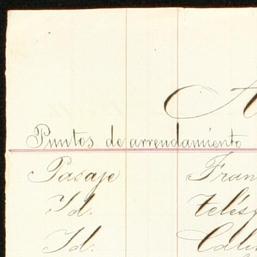 A
Puntos de arrendamiento
Pasaje Fran
Id. telés
Id. Cali